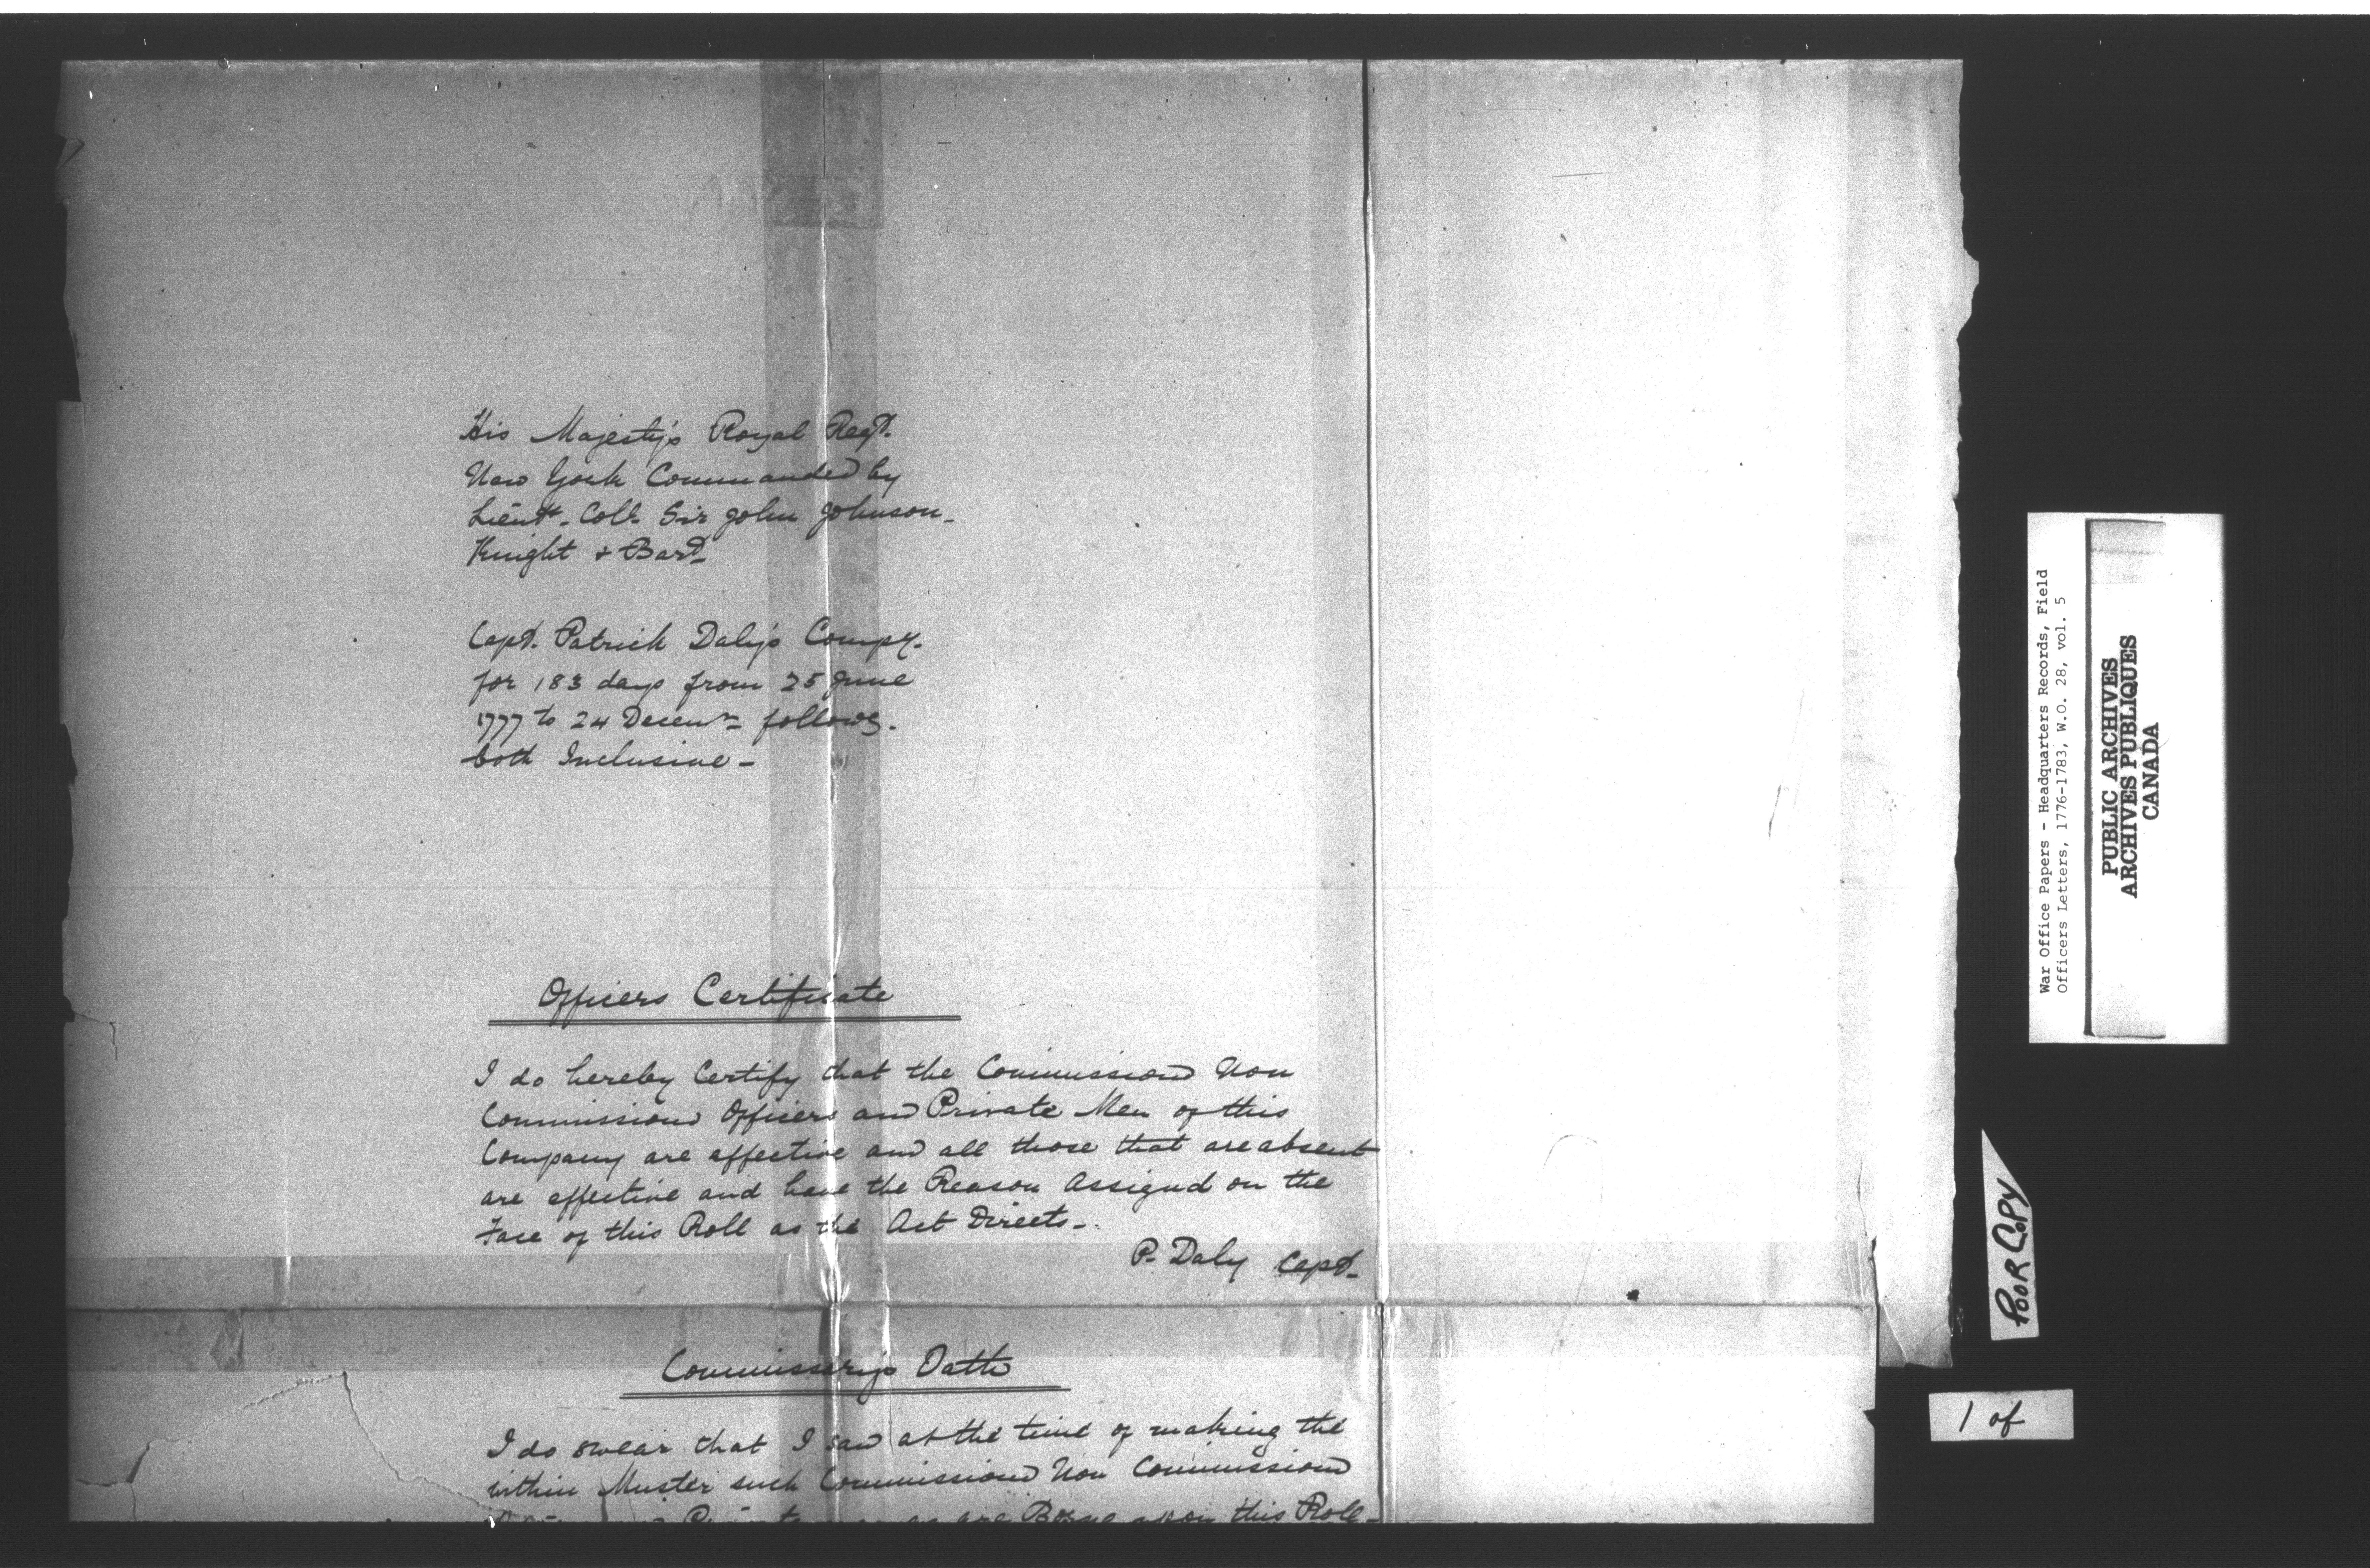 His Majesty's Royal Regt.
New York Commanded by
Lieut. Coll. Sir John Johnson
Knight & Bart
Capt. Patrick Daly's Compy.
for 183 days from 25 June
1777 to 24 Decemr follows.
both Inclusive -
Officers Certificate
I do hereby Certify that the Commissiond Non
Commissiond Officers and Private Men of this
Company are effective and all those that are absent
are effective and have the Reason Assignd on the
Face of this Roll as the Act Directs -
P. Daly Capt.
Commissery's Oath
I do swear that I saw at the time of making the
within Muster such Commissiond Non Commissiond
as are Borne upon this Roll -
War Office Papers - Headquarters Records, Field
Officers Letters, 1776-1783, W.O. 28, vol. 5
PUBLIC ARCHIVES
ARCHIVES PUBLIQUES
CANADA
POOR COPY
1 of